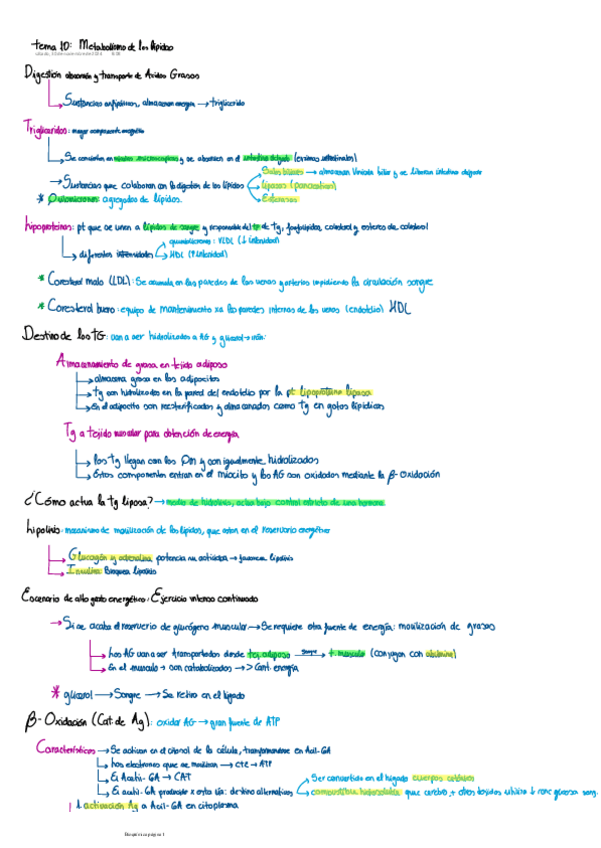 Tema 10: Metabolismo de los lípidos
Digestión absorción y transporte de Ácidos Grasos
Sustancias anfipáticas, almacenan energía → triglicérido
Triglicéridos: mayor componente energético
Se convierten en micelas microscópicas y se absorben en el intestino delgado (enzimas intestinales)
→ Sustancias que colaboran con la digestión de los lípidos
Sales biliares → almacenan Vesícula biliar y se liberan intestino delgado
Lipasas (pancreáticas)
Esterasas
* Quilomicrones: agregados de lípidos.
Lipoproteínas: pt que se unen a lípidos de sangre y responsable del tp de tg, fosfolípidos, colesterol y esteres de colesterol
diferentes intensidades
quilomicrones: VLDL (↓ intensidad)
HDL (↑ intensidad)
* Colesterol malo (LDL): Se acumula en las paredes de las venas y arterias impidiendo la circulación sangre
* Colesterol bueno: equipo de mantenimiento xa las paredes internas de los venos (endotelio) HDL
Destino de los TG: van a ser hidrolizados a AG y glicerol → irán:
Almacenamiento de grasa en tejido adiposo
almacena grasa en los adipocitos
tg son hidrolizados en la pared del endotelio por la pt lipoproteína lipasa
En el adipocito son reesterificados y almacenados como tg en gotas lipídicas
Tg a tejido muscular para obtención de energía
Los tg llegan con los Qm y son igualmente hidrolizados
Estos componentes entran en el miocito y los AG son oxidados mediante la β-oxidación
¿Cómo actua la tg liposa? → medio de hidrolisis, actua bajo control estricto de una hormona
Lipolisis: mecanismo de movilización de los lípidos, que estan en el reservorio energético
Glucagón y adrenalina potencia su actividad → favorecen lipolisis
Insulina: Bloquea lipolisis
Escenario de alto gasto energético: Ejercicio intenso continuado
→ Si se acaba el reservorio de glucógeno muscular → Se requiere otra fuente de energía: movilización de grasas
Los AG van a ser transportados desde tej adiposo sangre → t. músculo (conjugan con albúmina)
En el músculo → son catabolizados → > Cant. energía
* glicerol → Sangre → Se retira en el hígado
β-Oxidación (Cat. de Ag): oxidar AG → gran fuente de ATP
Características → Se activan en el citosol de la célula, transformandose en Acil-CoA
Los electrones que se movilizan → cte → ATP
El Acetil-CoA → CAT
El acetil-CoA producido x esta vía: destino alternativos
Ser convertido en el hígado cuerpos cetónicos
combustible hidrosoluble que cerebro + otros tejidos utilizan ↓ conc glucosa sang.
1. activación Ag a Acil-CoA en citoplasma
Bioquímica página 1